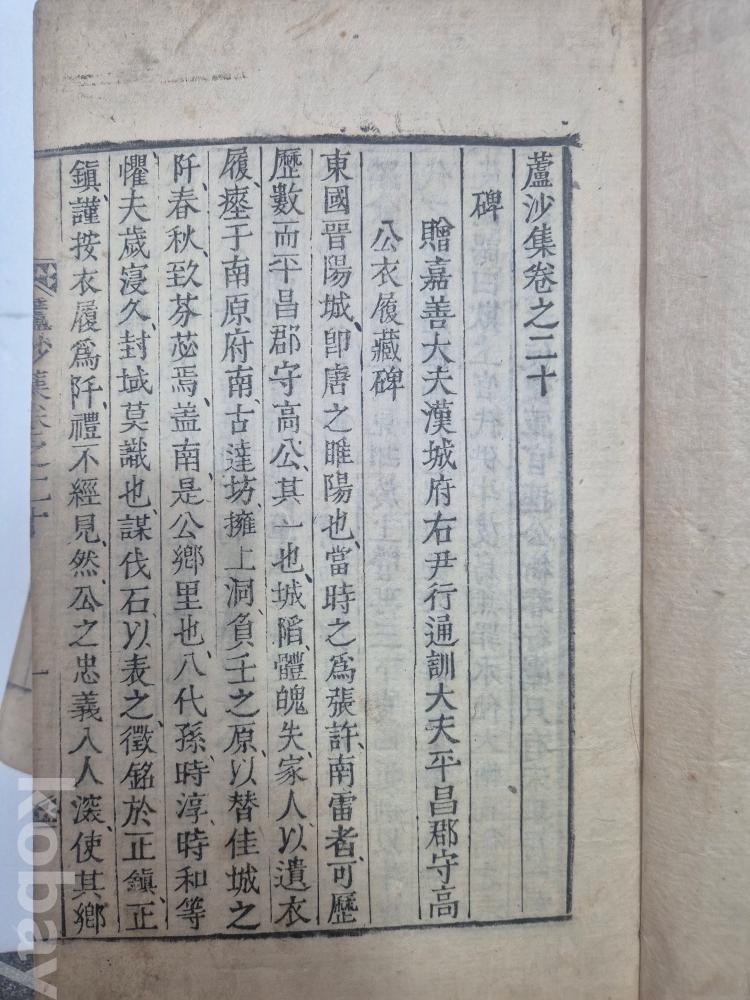 蘆沙集卷之二十
碑
贈嘉善大夫漢城府右尹行通訓大夫平昌郡守高
公衣履藏碑
東國晉陽城卽唐之睢陽也當時之爲張許南雷者可歷
歷數而平昌郡守高公其一也城陷體魄失家人以遺衣
履瘞于南原府南古達坊擁上洞負壬之原以替佳城之
阡春秋致芬苾焉盖南是公鄕里也八代孫時淳時和等
懼夫歲寖久封域莫識也謀伐石以表之徵銘於正鎭正
鎭謹按衣履爲阡禮不經見然公之忠義入人深使其鄕
蘆沙集卷之二十
一
kobay